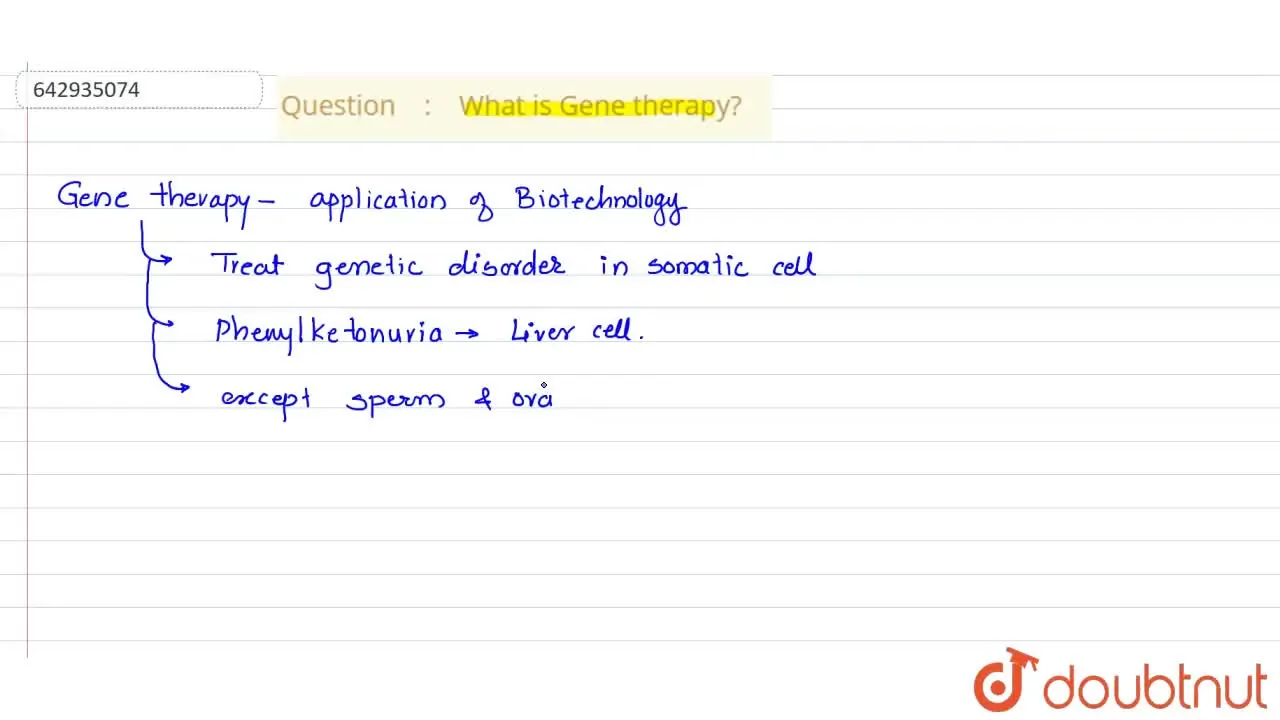 642935074
Question : What is Gene therapy?
Gene therapy - application of Biotechnology
Treat genetic disorder in somatic cell
Phenylketonuria → Liver cell.
except sperm & ova
doubtnut